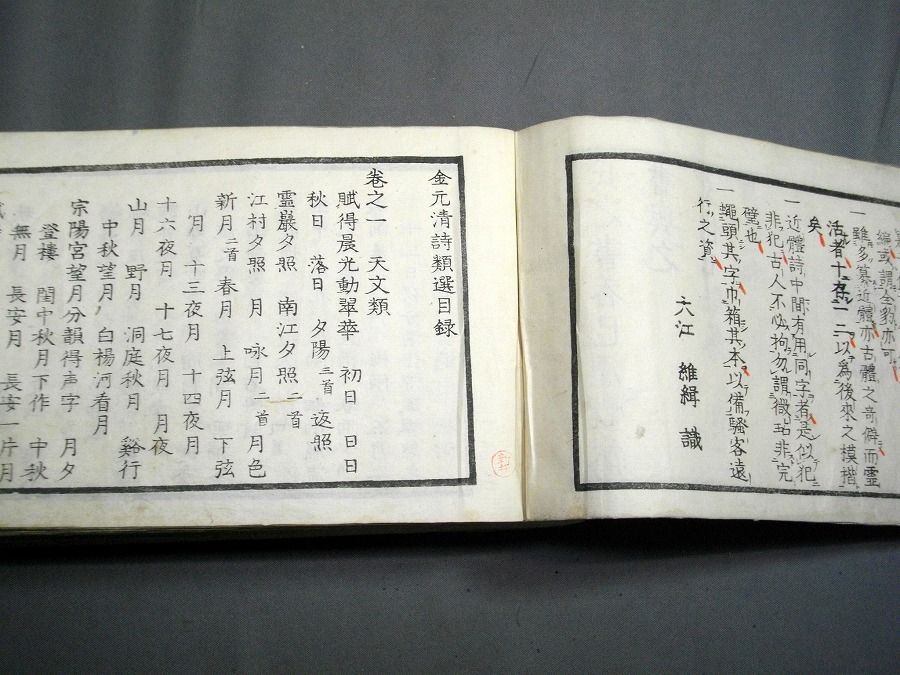 編或謂全豹亦可
一騷多慕近體亦古體之奇僻而靈
活者十存一二以爲後來之模楷
矣
一近體詩中間有用同字者是似犯
非犯古人不必拘勿謂微玷非完
璧也
一蠅頭其字巾箱其本以備騷客遠
行之資
六江 維緝 識
金元清詩類選目録
卷之一 天文類
賦得晨光動翠華 初日 日日
秋日 落日 夕陽三首 返照
靈巖夕照 南江夕照二首
江村夕照 月 咏月二首 月色
新月二首 春月 上弦月 下弦
月 十三夜月 十四夜月
十六夜月 十七夜月 月夜
山月 野月 洞庭秋月 谿行
中秋望月 白楊河看月
宗陽宮望月分韻得声字 月夕
登樓 閏中秋月下作 中秋
無月 長安月 長安一片月